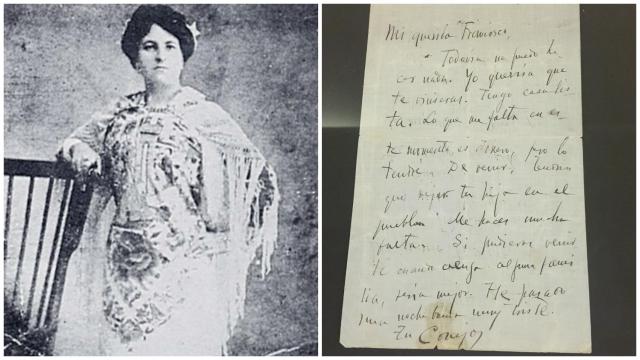 Mi querida Francisca,
Todavia no puedo ha-
cer nada. Yo querria que
te vinieras. Tengo casa lis-
ta. Lo que me falta en es-
te momento es dinero, pero lo
tendre. De venir, tendras
que dejar tu hija en el
pueblo. Me haces mucha
falta. Si pudieras venir-
te cuando venga alguna fami-
lia, seria mejor. He pasado
una noche buena muy triste.
Tu Conejo